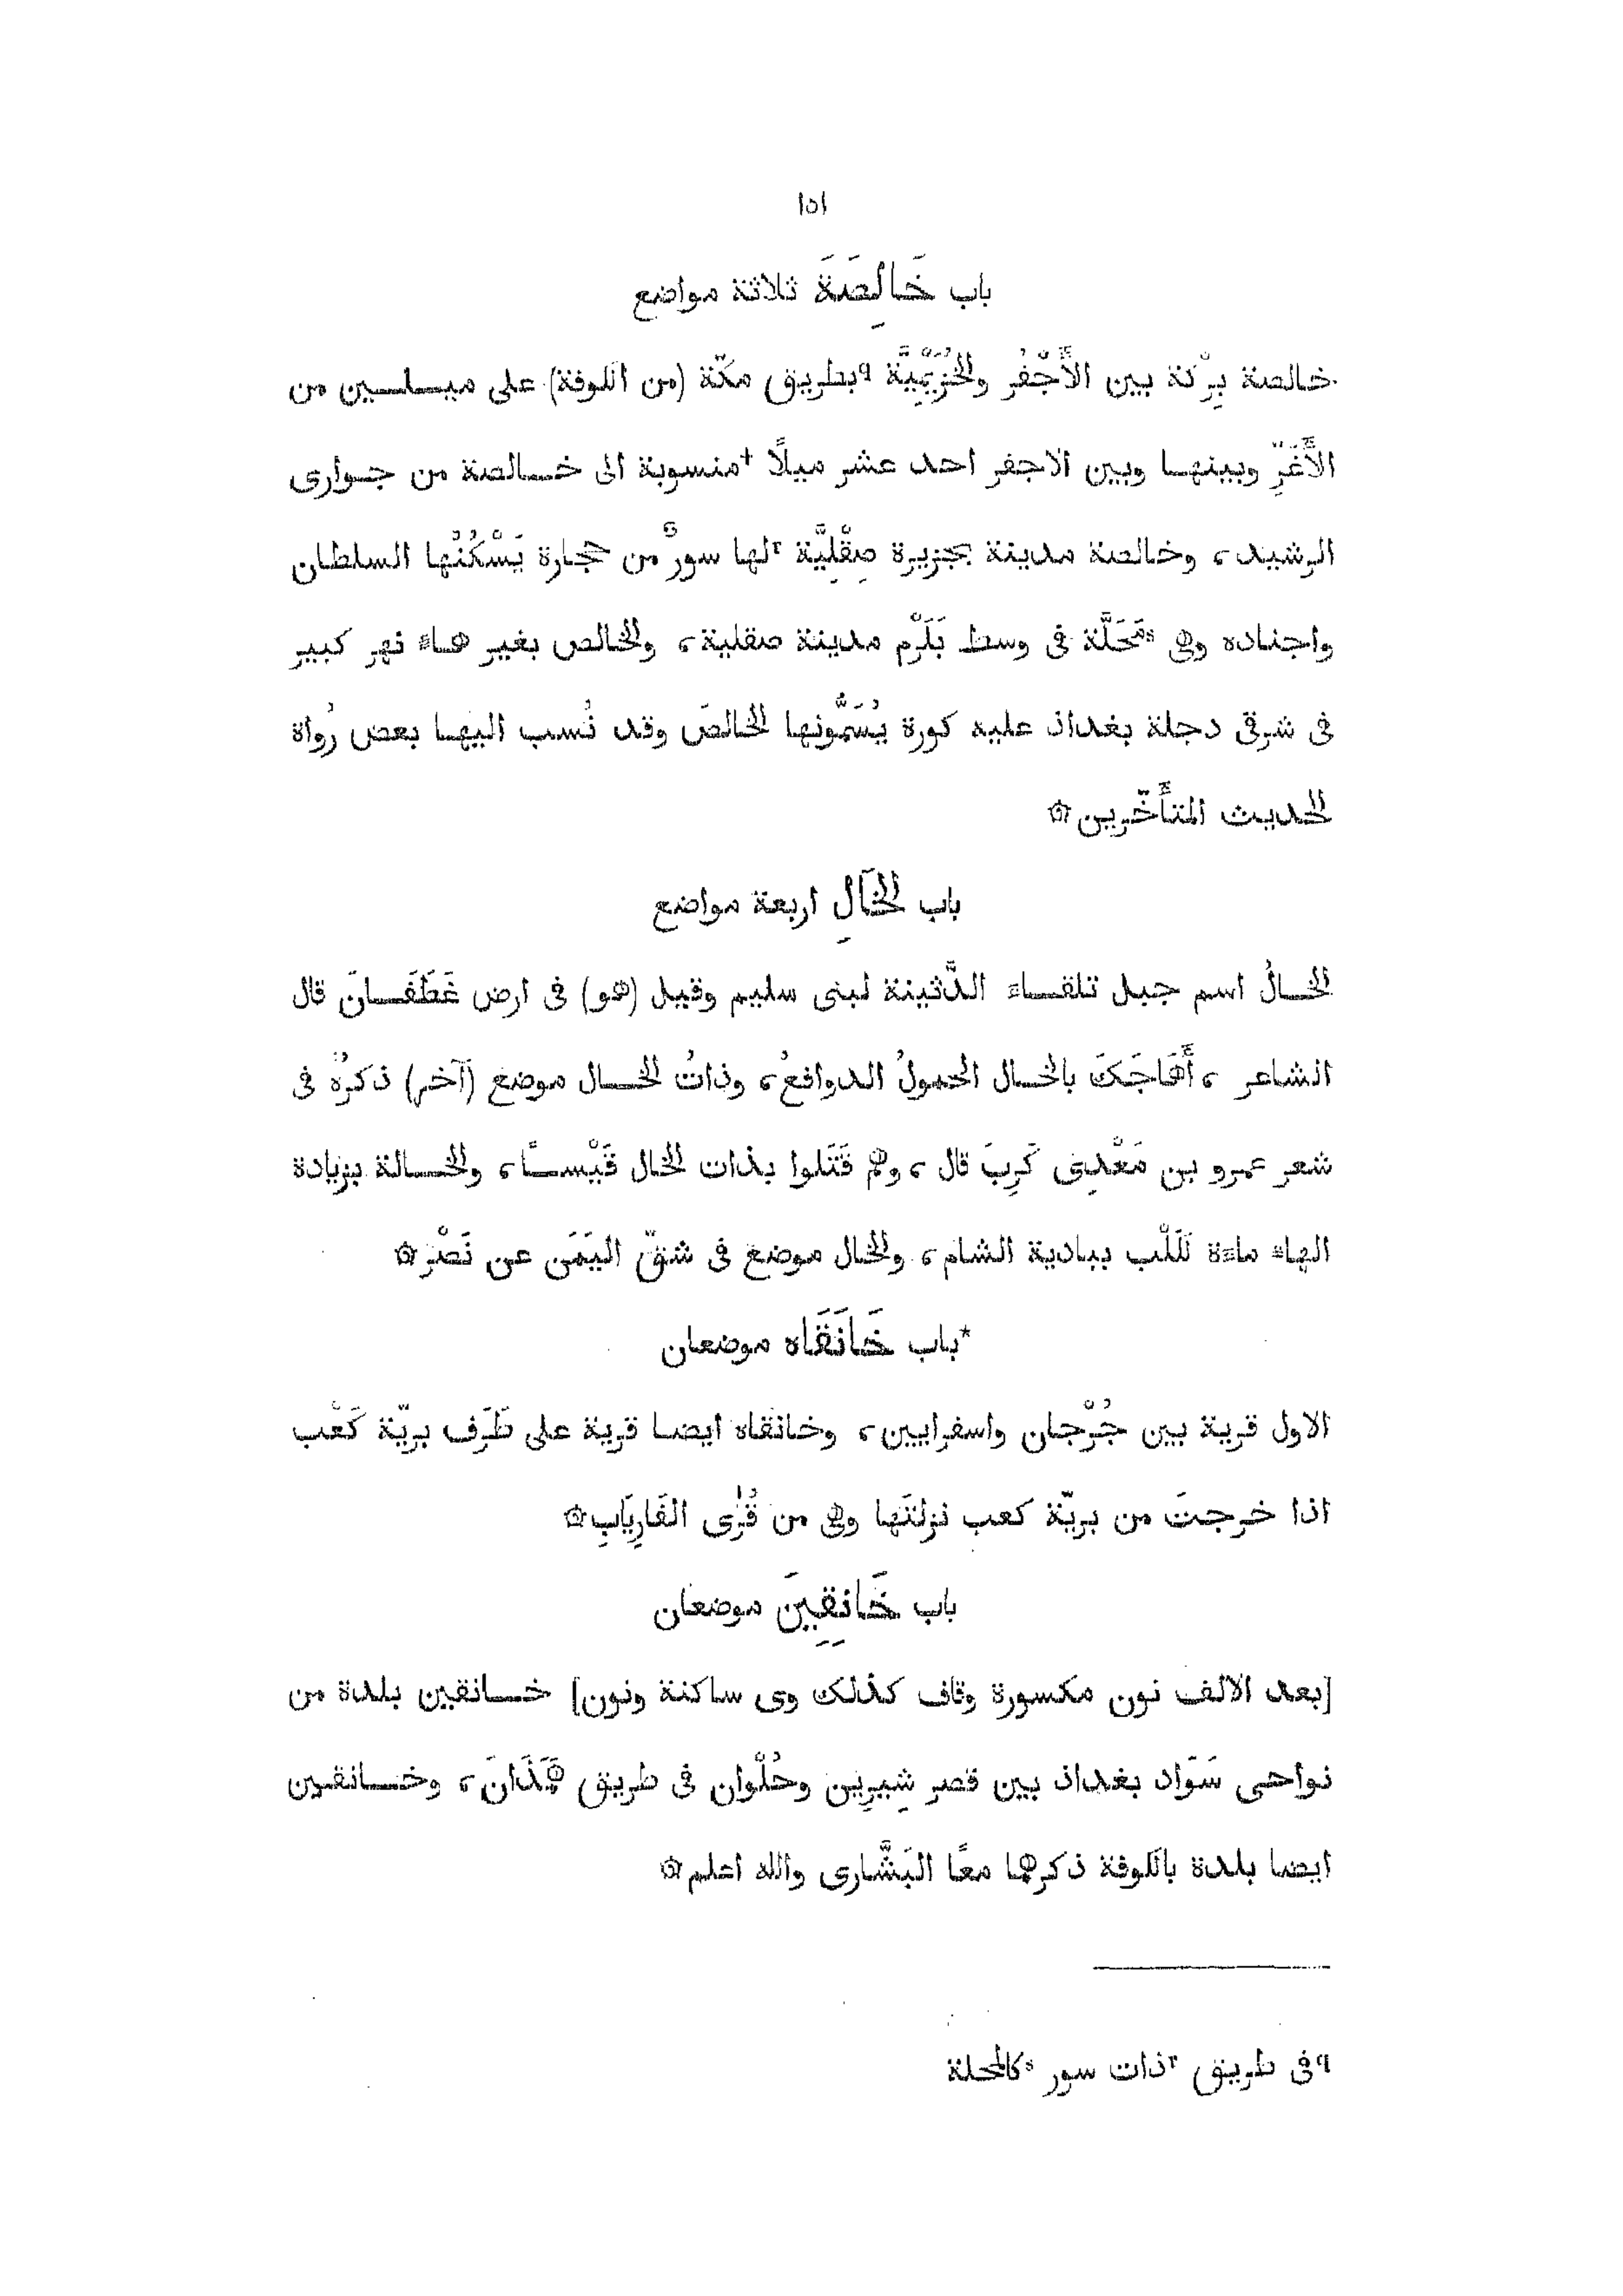 ١٥١
باب خَالِصَةَ ثلاثة مواضع
خالصة بِرْكة بين الأَجْفُر والخُزَيْمِيَّة qبطريق مكّة (من الكوفة) على ميلين من
الأَغَرِّ وبينها وبين الاجفر احد عشر ميلًا †منسوبة الى خالصة من جوارى
الرشيد، وخالصة مدينة بجزيرة صِقْلِيَّة rلها سورٌ من حجارة يَسْكُنُها السلطان
واجناده وهى sمَحَلَّة فى وسط بَلَرْم مدينة صقلية، والخالص بغير هاء نهر كبير
فى شرقى دجلة بغداد عليه كورة يُسَمُّونها الخالصَ وقد نُسب اليها بعض رُواة
الحديث المتأخّرين ۞
باب الخَالِ اربعة مواضع
الخالُ اسم جبل تلقاء الدَّثينة لبنى سليم وقيل (هو) فى ارض غَطَفَانَ قال
الشاعر، أَهَاجَكَ بالخال الحمولُ الدوافعُ، وذاتُ الخال موضع (آخر) ذكرُهُ فى
شعر عمرو بن مَعْدِى كَرِبَ قال، وهم قَتَلوا بذات الخال قَيْسًا، والخالة بزيادة
الهاء ماءة لكَلْب ببادية الشام، والخال موضع فى شقّ اليَمَن عن نَصْر ۞
*باب خَانَقَاه موضعان
الاول قرية بين جُرْجان واسفرايين، وخانقاه ايضا قرية على طَرَف بريّة كَعْب
اذا خرجتَ من بريّة كعب نزلتَها وهى من قُرَى الفَارِيَابِ ۞
باب خَانِقِينَ موضعان
[بعد الالف نون مكسورة وقاف كذلك وى ساكنة ونون] خانقين بلدة من
نواحى سَوَاد بغداد بين قصر شِيرِين وحُلْوان فى طريق هَمَذَانَ، وخانقين
ايضا بلدة بالكوفة ذكرهما معًا البَشَّارى والله اعلم ۞
qفى طريق rذات سور sكالمحلة